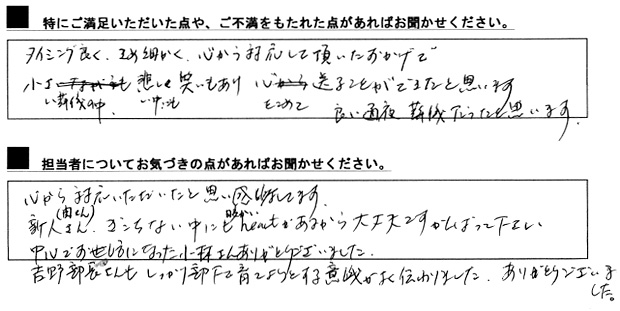 特にご満足いただいた点や、ご不満をもたれた点があればお聞かせください。
タイミング良く、きめ細かく、心から対応して頂いたおかげで
小さい葬儀の中、悲しい中にも笑いもあり 心をこめて送ることができたと思います
良い通夜 葬儀だったと思います。
担当者についてお気づきの点があればお聞かせください。
心から対応いただいたと思い感謝してます。
新人さん、ぎこちない中にも暖かいheartがあるから大丈夫ですがんばって下さい
中心でお世話になった小林さんありがとうございました。
吉野部長さんも しっかり部下を育てようとする意識がよく伝わりました。ありがとうございました。